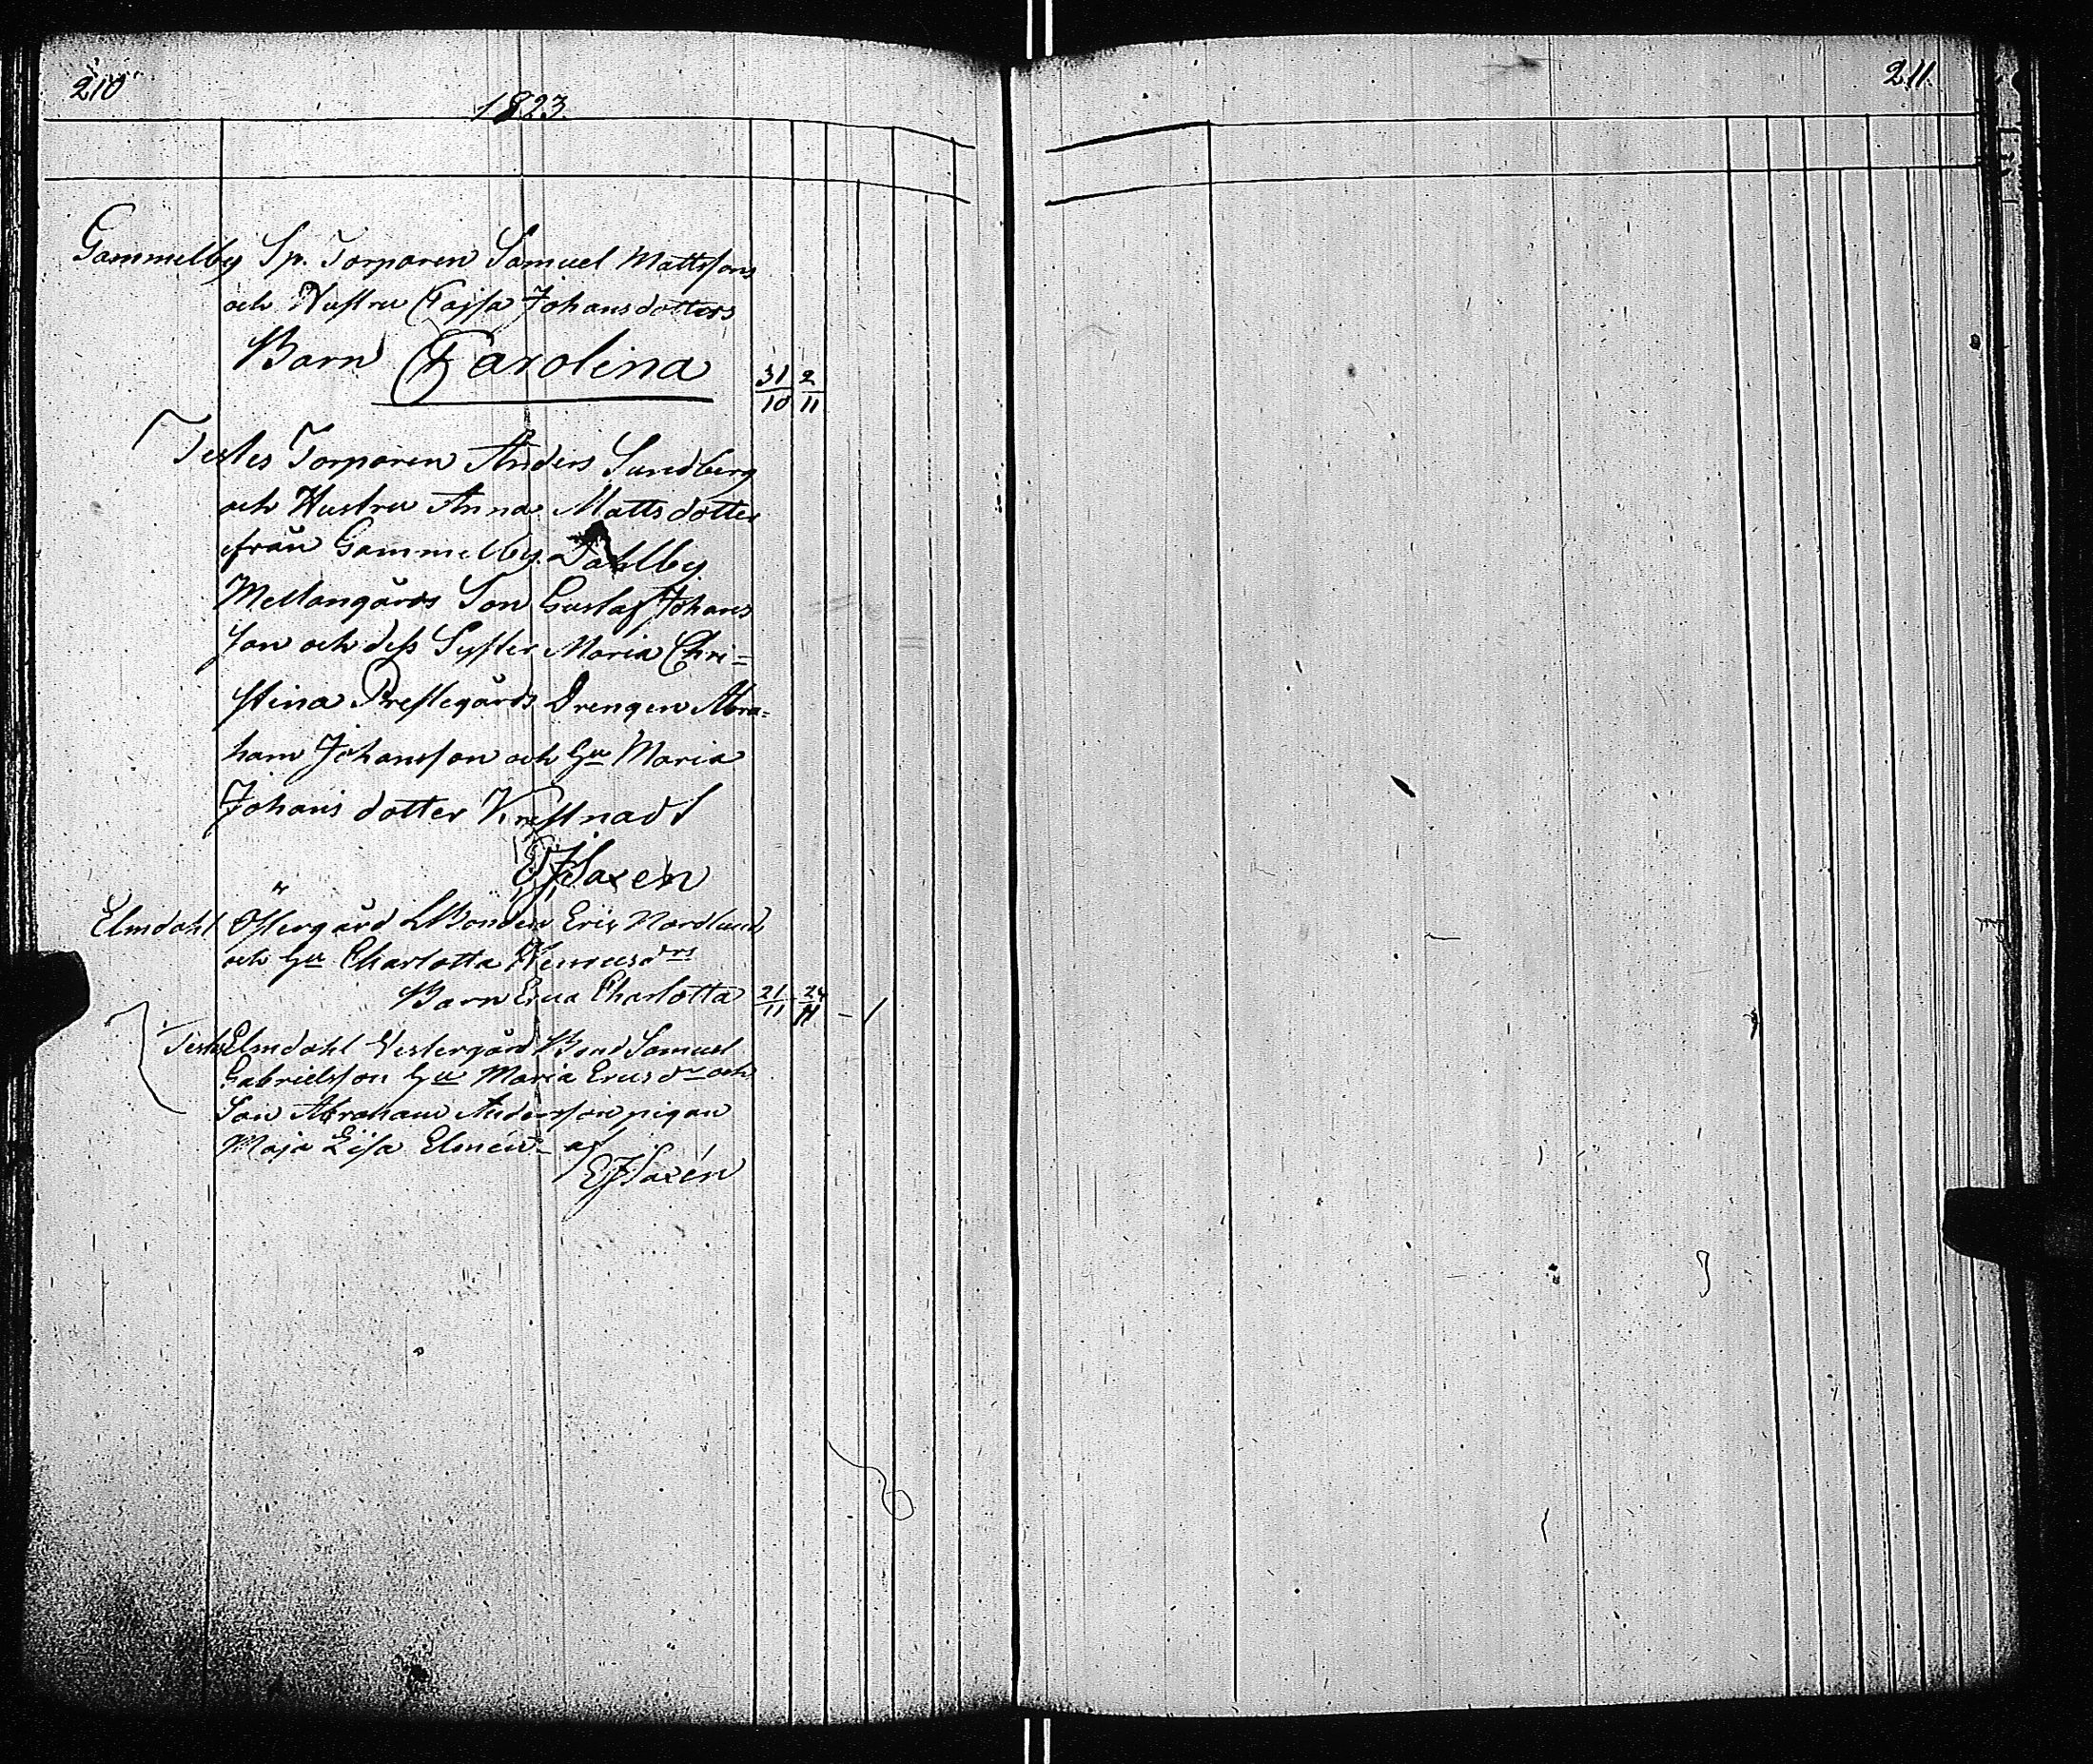 210
1823.
Gammelby Sp. Torparen Samuel Mattssons
och Hustru Cajsa Johansdotters
Barn Carolina 31/10 2/11
Testes Torparen Anders Sundberg
och Hustru Anna Mattsdotter
från Gammelby. Dahlby
Mellangårds Son Gustaf Johans
son och dess Syster Maria Chri=
stina Prestegårds Drengen Abra=
ham Johansson och Hu Maria
Johans dotter
EJSaxén
Elmdahl Östergård Bonden Eric Nordlund
och Hu Charlotta
Barn Charlotta 21/11 24/11 - 1
Testes Elmdahl Vestergård Bond Samuel
Gabrielsson Hu Maria Ericsdr och
Son Abraham Andersson pigan
Maja Lisa Elmén af
EJSaxén
211.